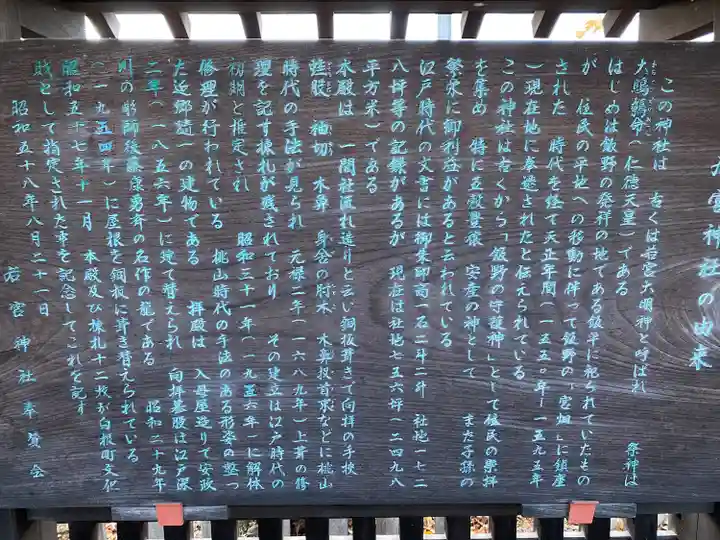 若宮神社の由来
この神社は 古くは若宮大明神と呼ばれ 祭神は
大鷦鷯命(仁徳天皇)である
はじめは飯野の発祥の地である飯平に祀られていたもの
が 住民の平地への移動に伴って飯野の「宮畑」に鎮座
された 時代を経て天正年間(一五五〇年〜一五九五年
)現在地に奉遷されたと伝えられている
この神社は古くから「飯野の守護神」として住民の崇拝
を集め 特に五穀豊穣 安産の神として また子孫の
繁栄に御利益があると云われている
江戸時代の文書には御朱印高一石二斗二升 社地一七二
八坪等の記録があるが 現在は社地七五六坪(二四九八
平方米)である
本殿は 一間社流れ造りと云い銅板葺きで向拝の手挟
蟇股 袖切 木鼻 象鼻の肘木 木鼻 などに桃山
時代の手法が見られ 元禄二年(一六八九年)上葺の修
理を記す棟札が残されており その建立は江戸時代の
初期と推定され 昭和三十一年(一九五六年)に解体
修理が行われている 桃山時代の手法のある形姿の整っ
た近郷随一の建物である 拝殿は 入母屋造りで安政
二年(一八五六年)に建て替えられ 向拝墓股は江戸深
川の彫師後藤 勇斉の名作の龍である 昭和二十九年
(一九五四年)に屋根を銅板に葺き替えられている
昭和五十七年十一月 本殿及び棟札十二枚が白根町文化
財として指定された事を記念してこれを記す
昭和五十八年八月二十一日
若宮神社奉賛会